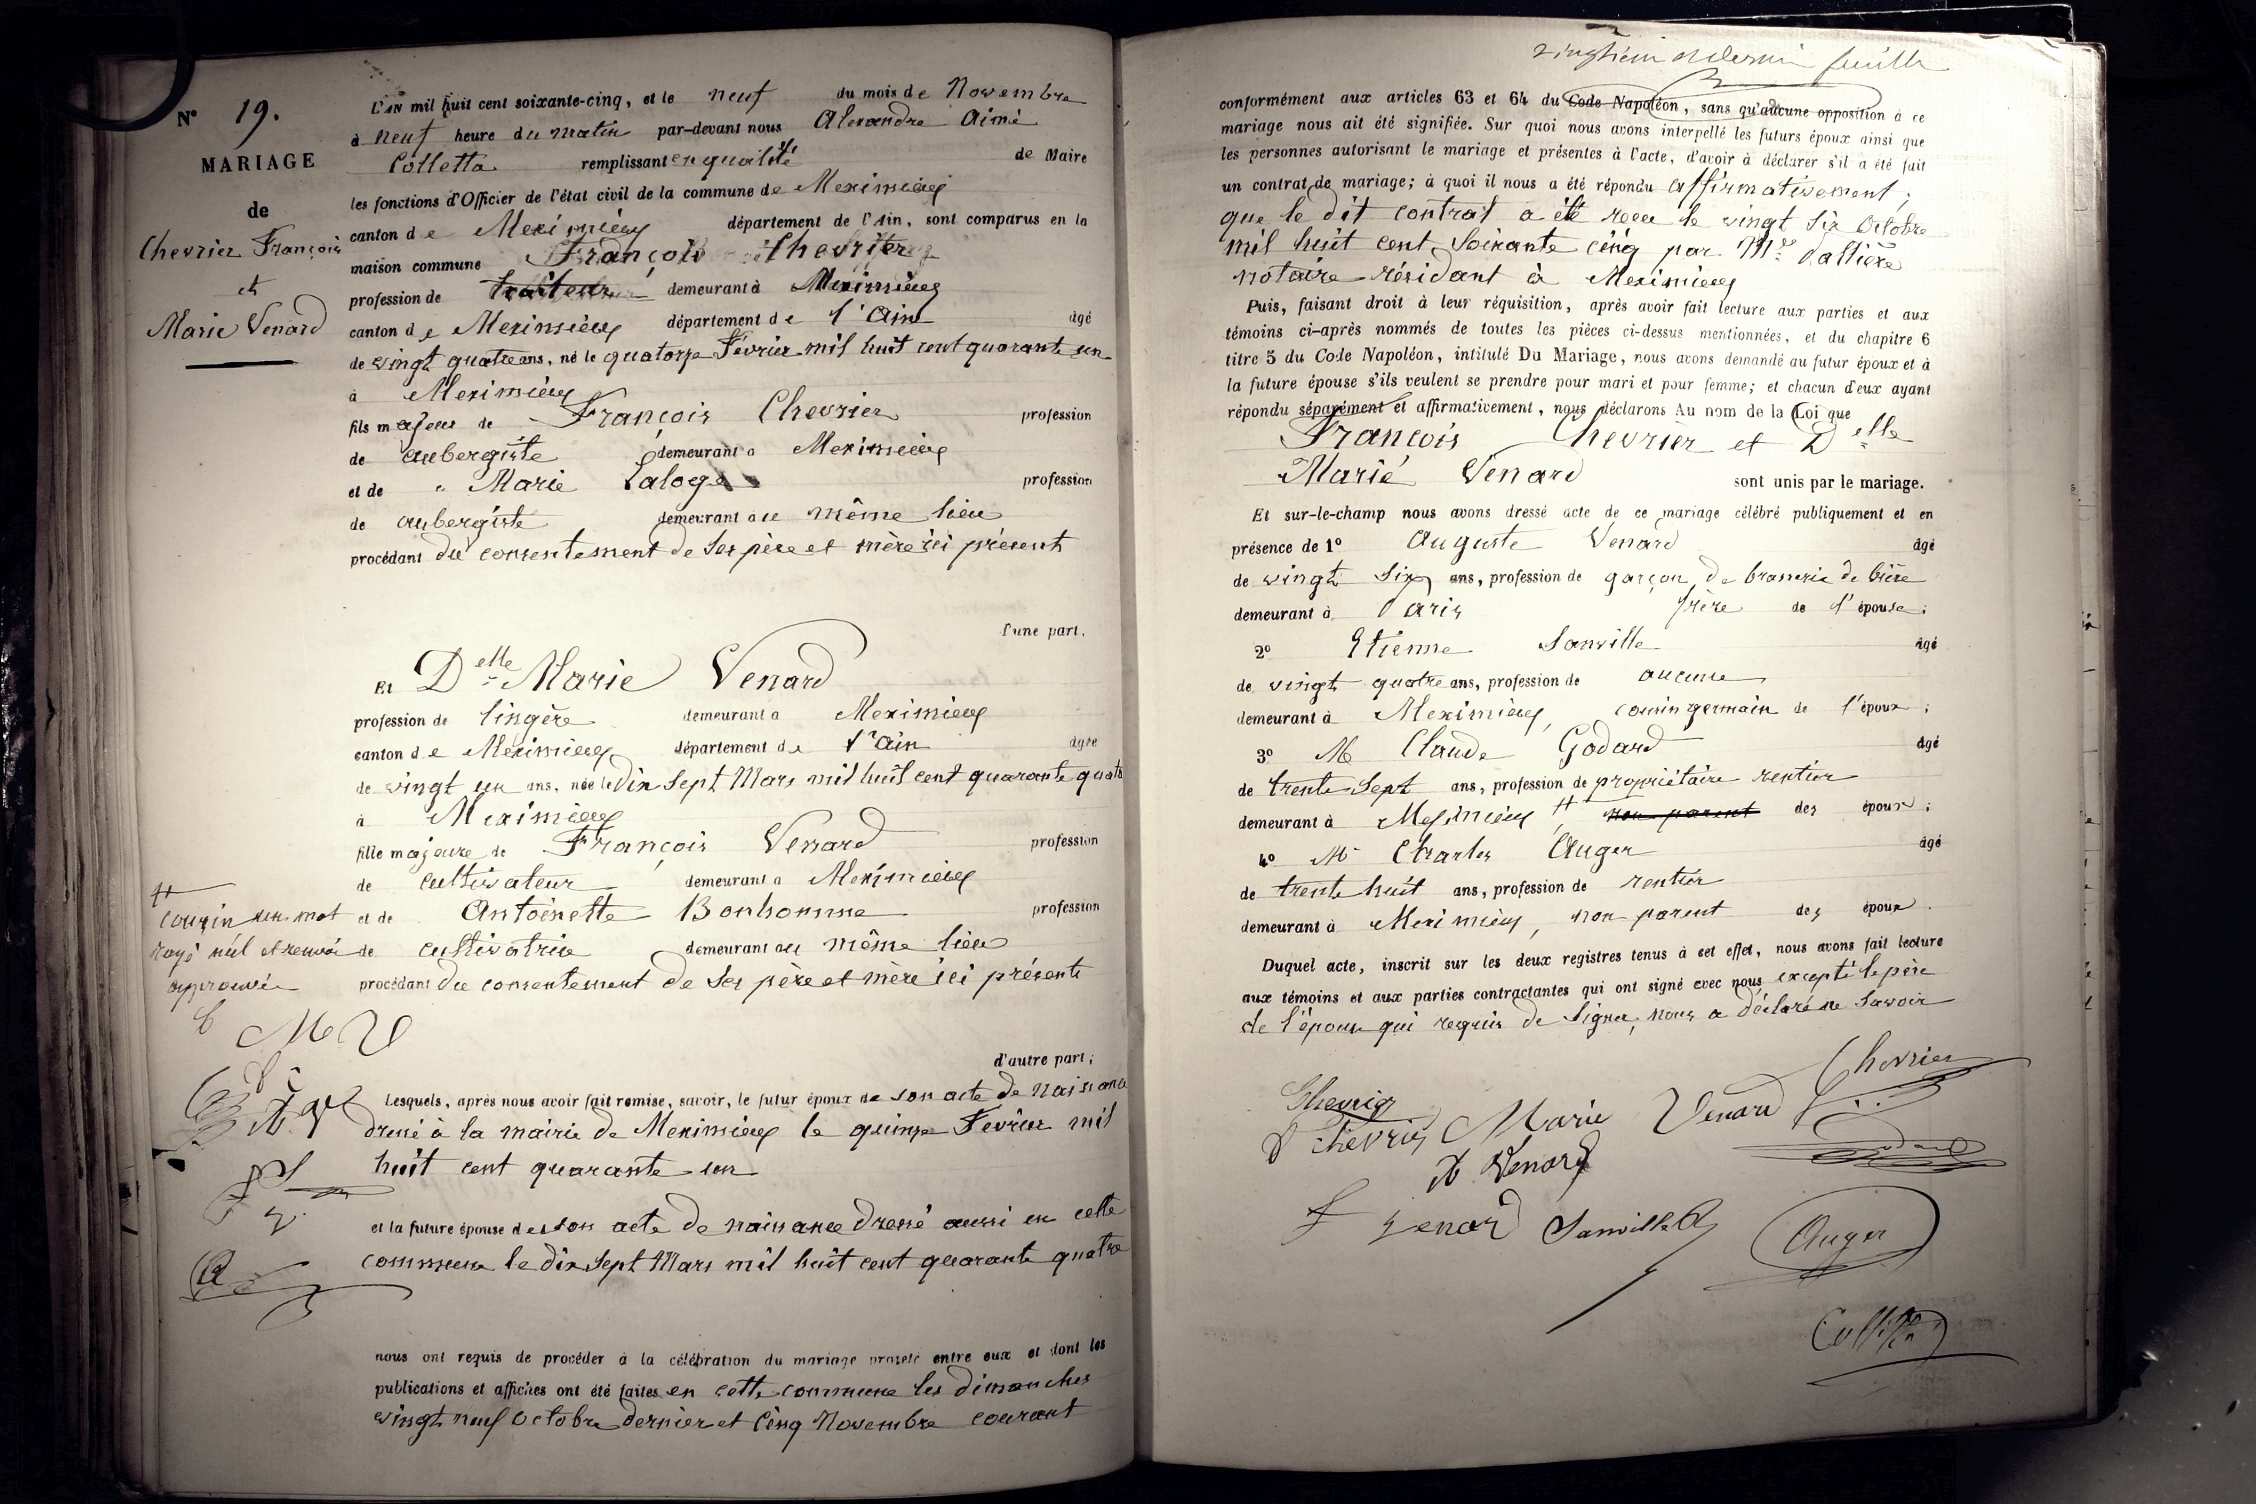 N° 19.
MARIAGE
de
Chevrier François
et
Marie Venard
L'AN mil huit cent soixante-cinq, et le neuf du mois de Novembre
à neuf heure du matin par-devant nous Alexandre Aimé
Colletta remplissant en qualité de Maire
les fonctions d'Officier de l'état civil de la commune de Meximieux
canton de Meximieux département de l'Ain, sont comparus en la
maison commune François Chevrier
profession de traiteur demeurant à Meximieux
canton de Meximieux département de l'Ain âgé
de vingt quatre ans, né le quatorze Février mil huit cent quarante un
à Meximieux
fils majeur de François Chevrier profession
de aubergiste demeurant à Meximieux
et de Marie Laloge profession
de aubergiste demeurant au même lieu
procédant du consentement de ses père et mère ici présents
d'une part.
Et Delle Marie Venard
profession de lingère demeurant à Meximieux
canton de Meximieux département de l'Ain âgée
de vingt un ans, née le dix sept Mars mil huit cent quarante quatre
à Meximieux
fille majeure de François Venard profession
de cultivateur demeurant à Meximieux
et de Antoinette Bonhomme profession
de cultivatrice demeurant au même lieu
procédant du consentement de ses père et mère ici présents
cousin un mot
rayé nul et renvoi
approuvé
M V
d'autre part;
Lesquels, après nous avoir fait remise, savoir, le futur époux de son acte de naissance
dressé à la mairie de Meximieux le quinze Février mil
huit cent quarante un
et la future épouse de son acte de naissance dressé aussi en cette
commune le dix sept Mars mil huit cent quarante quatre
nous ont requis de procéder à la célébration du mariage projeté entre eux et dont les
publications et affiches ont été faites en cette commune les dimanches
vingt neuf Octobre dernier et cinq Novembre courant
vingtième et dernier feuille
conformément aux articles 63 et 64 du Code Napoléon, sans qu'aucune opposition à ce
mariage nous ait été signifiée. Sur quoi nous avons interpellé les futurs époux ainsi que
les personnes autorisant le mariage et présentes à l'acte, d'avoir à déclarer s'il a été fait
un contrat de mariage; à quoi il nous a été répondu affirmativement,
que le dit contrat a été reçu le vingt six Octobre
mil huit cent soixante cinq par Me
notaire résidant à Meximieux
Puis, faisant droit à leur réquisition, après avoir fait lecture aux parties et aux
témoins ci-après nommés de toutes les pièces ci-dessus mentionnées, et du chapitre 6
titre 5 du Code Napoléon, intitulé Du Mariage, nous avons demandé au futur époux et à
la future épouse s'ils veulent se prendre pour mari et pour femme; et chacun d'eux ayant
répondu séparément et affirmativement, nous déclarons Au nom de la Loi que
François Chevrier et Delle
Marie Venard sont unis par le mariage.
Et sur-le-champ nous avons dressé acte de ce mariage célébré publiquement et en
présence de 1° Auguste Venard âgé
de vingt six ans, profession de garçon de brasserie de bière
demeurant à Paris frère de l'épouse;
2° Etienne Janville âgé
de vingt quatre ans, profession de aucune
demeurant à Meximieux, cousin germain de l'époux;
3° M Claude Godard âgé
de trente sept ans, profession de propriétaire rentier
demeurant à Meximieux non parent des époux;
4° M Charles Auger âgé
de trente huit ans, profession de rentier
demeurant à Meximieux, non parent des époux.
Duquel acte, inscrit sur les deux registres tenus à cet effet, nous avons fait lecture
aux témoins et aux parties contractantes qui ont signé avec nous excepté le père
de l'époux qui requis de signer, nous a déclaré ne savoir
Chevrier
Chevrier
Chevrier Marie Venard
Venard
Venard Janville
Auger